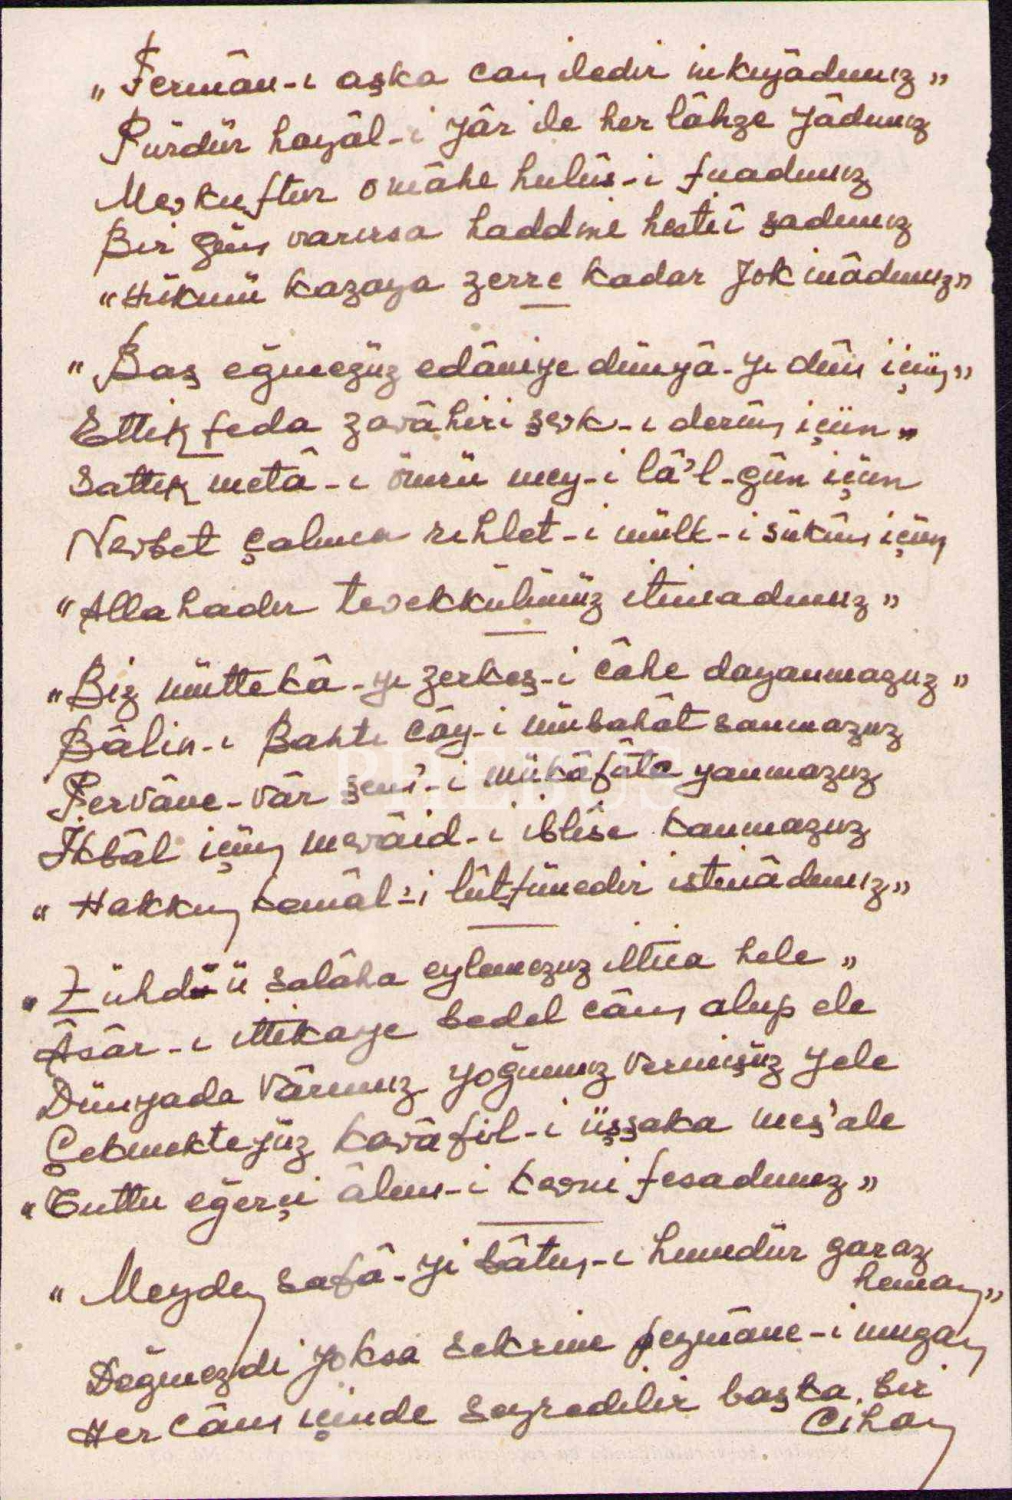 „Fermân-ı aşka can iledir inkıyâdımız”
Pürdür hayâl-i yâr ile her lâhze yâdımız
Mevkuftur o mâhe hulûs-i fuadımız
Bir gün varırsa haddine hestîi şadımız
“Hükmü kazaya zerre kadar yok inâdımız”
“Baş eğmeyüz edâniye dünyâ-yı dûn içün”
Ettik feda zavâhiri şevk-ı derûn içün„
Sattık metâ-ı ömrü mey-i lâ'l-gûn içün
Nevbet çalınca rıhlet-i mülk-i sükûn içün
“Allahadır tevekkülümüz itimadımız”
“Biz müttekâ-yı zerkeş-i câhe dayanmazuz”
Bâlin-ı Bahtı cây-i mübahât sanmazuz
Pervâne-vâr şem'-i mükâfâta yanmazuz
İkbâl içün mevâid-ı iblîse kanmazuz
“Hakkın kemâl-i lûtfunedir istinâdımız”
“Zühdü ü salâha eylemezuz iltica hele„
Âsâr-ı ittikaye bedel câm alup ele
Dünyada vârımız yoğumuz vermişüz yele
Çekmekteyüz kavâfil-i üşşaka meş'ale
“Tuttu eğerçi âlem-i kevni fesadımız”
“Meyden safâ-yi bâtın-ı humdür garaz
heman”
Değmezdi yoksa sekrine peymâne-i mugan
Her câm içinde seyredilir başka bir
Cihan
PHEBUS